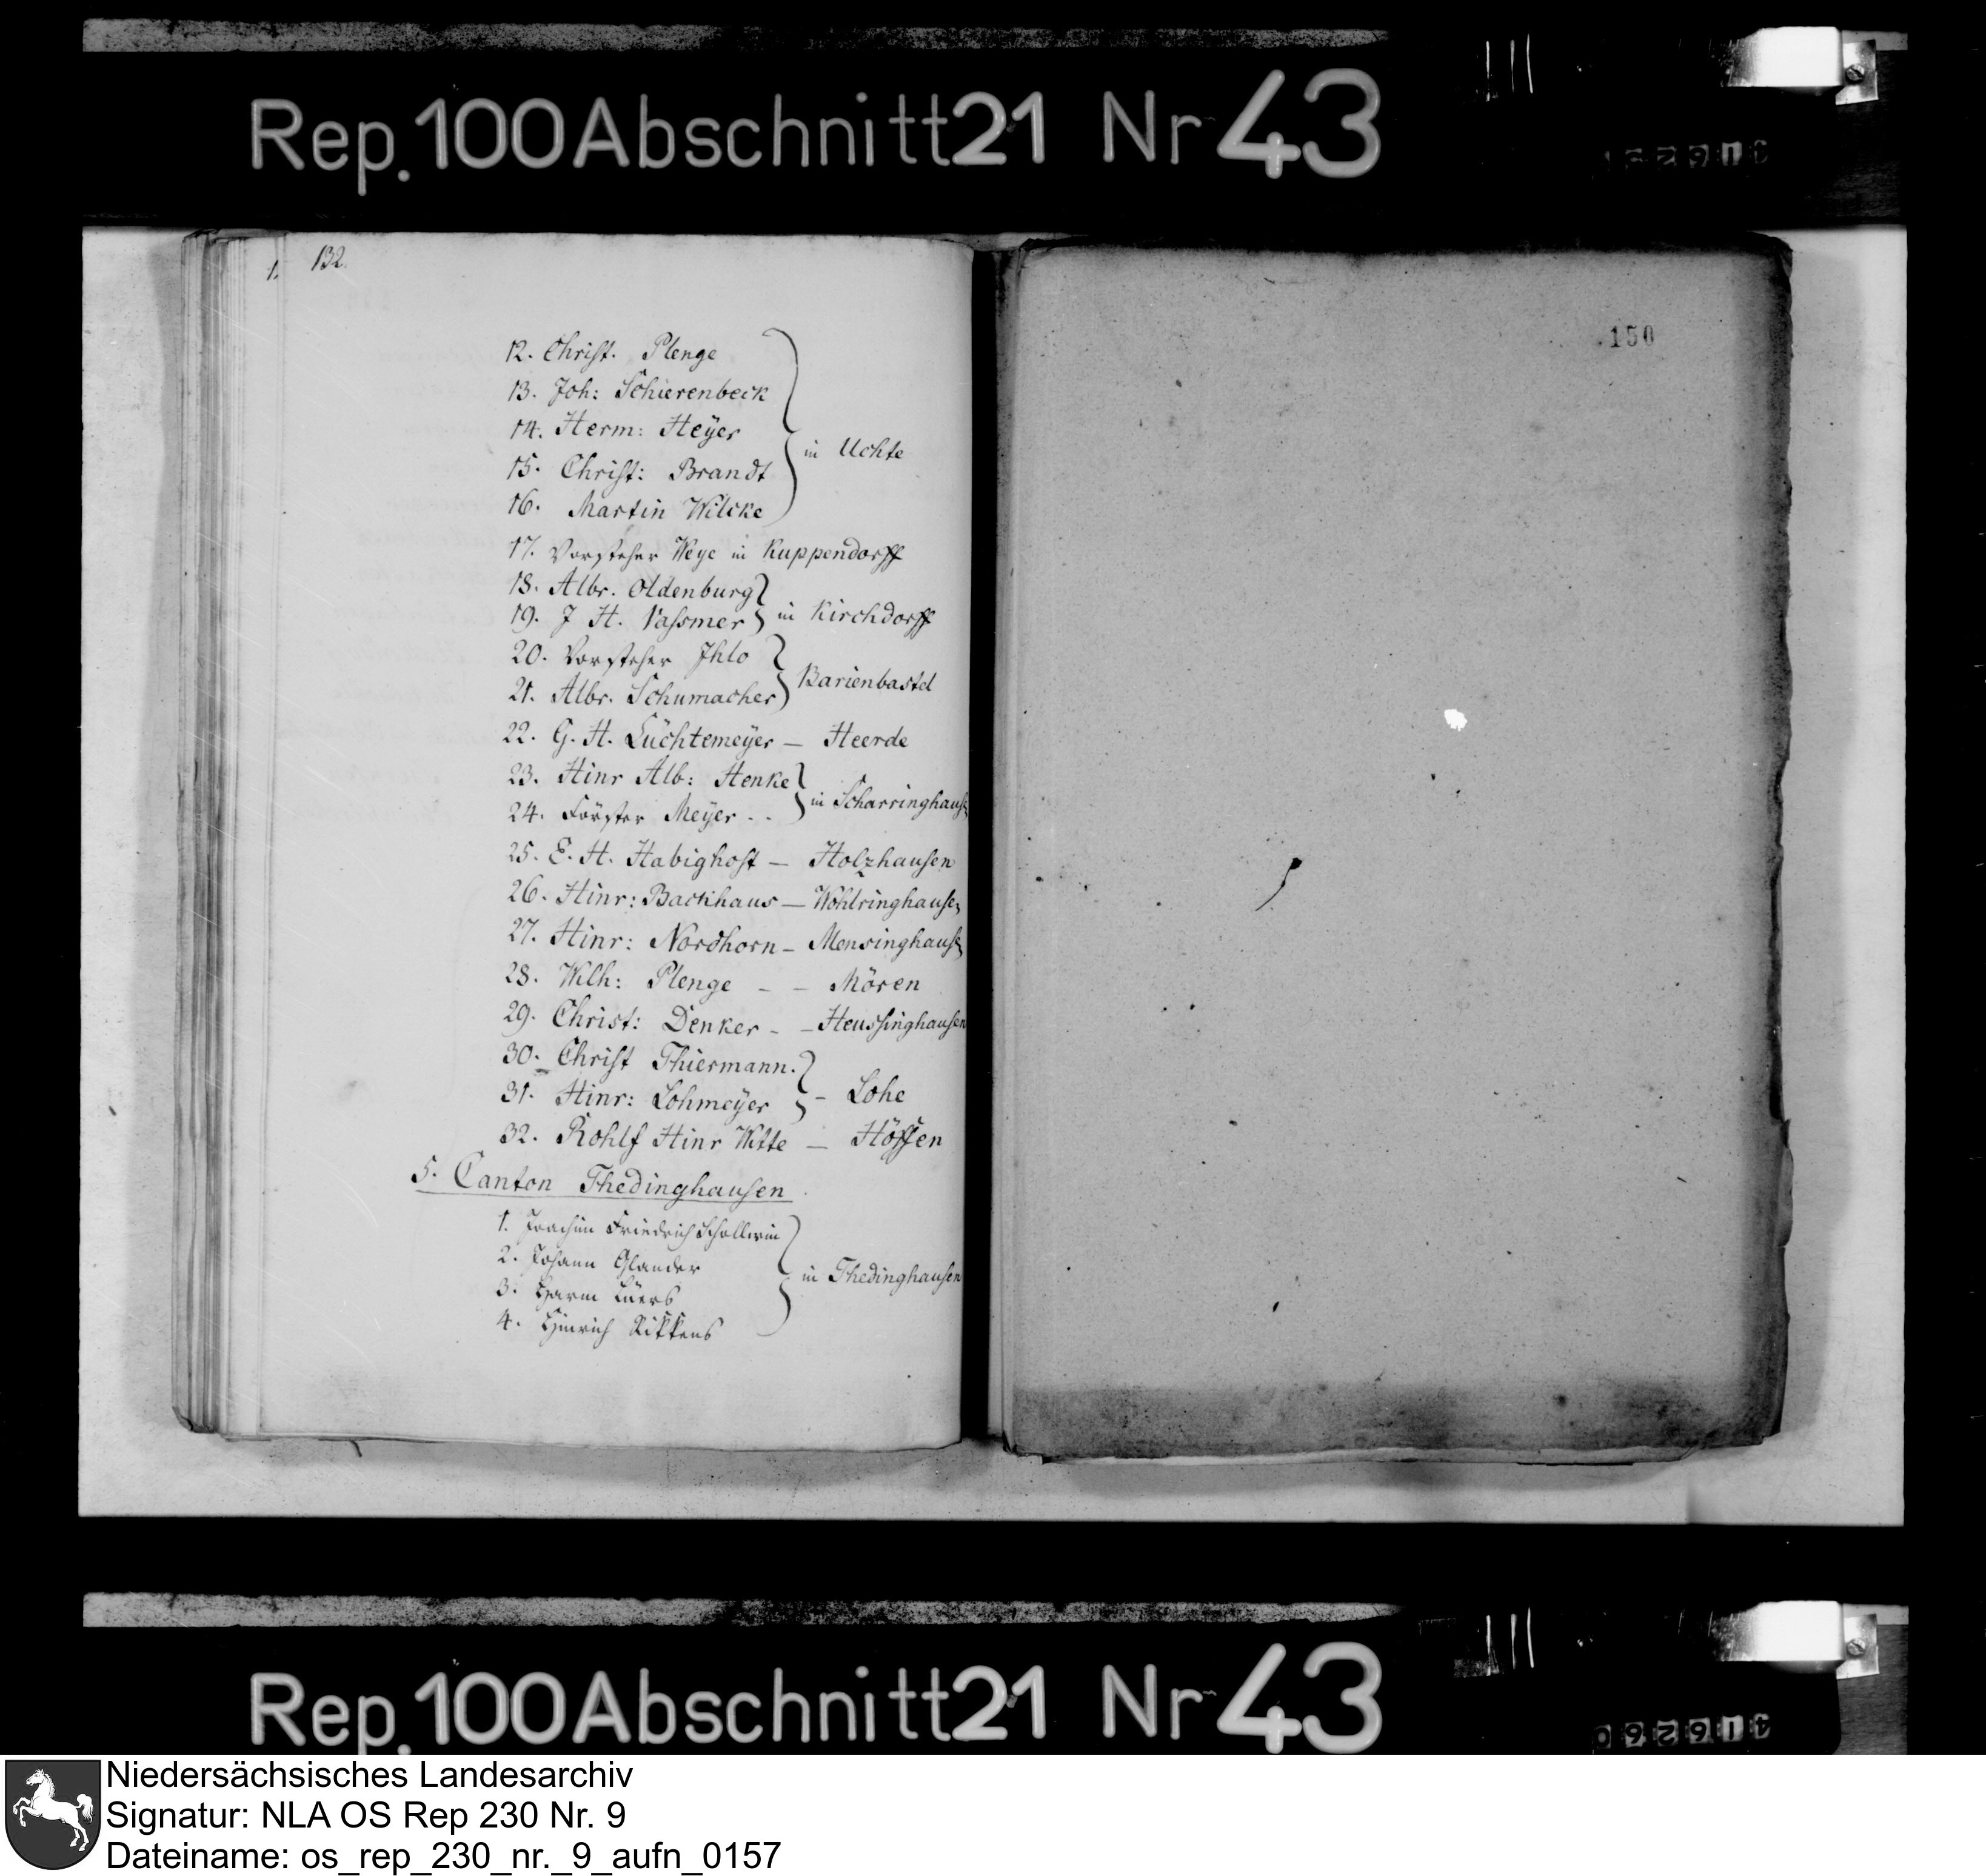 Rep.100Abschnitt21 Nr 43
1. 132.
12. Christ. Plenge
13. Joh: Schierenbeck
14. Herm: Heÿer
15. Christ: Brandt
in Uchte
16. Martin Wilcke
17. Vorsteher Weye in Kuppendorff
18. Albr. Oldenburg
19. J H. Vassmer in Kirchdorff
20. Vorsteher Ihlo
21. Albr. Schumacher Barienbastel
22. G. H. Lüchtemeÿer — Heerde
23. Hinr Alb: Henke
24. Förster Meÿer . . in Scharringhaus
25. E. H. Habighost — Holzhausen
26. Hinr: Backhaus — Wohlringhausen
27. Hinr: Nordhorn — Mensinghaus
28. Wilh: Plenge – – Mören
29. Christ: Denker – – Heussinghausen
30. Christ Thiermann.
31. Hinr: Lohmeÿer – Lohe
32. Rohlf Hinr Witte — Höfen
5. Canton Thedinghausen
1. Joachim Friedrich Schollwin
2. Johann Glander
in Thedinghausen
3. Harm Lüers
4. Hinrich Rikkens
150
Rep.100Abschnitt21 Nr 43
Niedersächsisches Landesarchiv
Signatur: NLA OS Rep 230 Nr. 9
Dateiname: os_rep_230_nr._9_aufn_0157